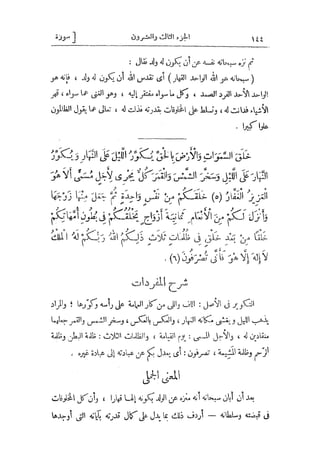 ١٤٤ الجزء الثالث والعشرون [ سورة
ثم نزه سبحانه نفسه عن أن يكون له ولد فقال :
( سبحانه هو الله الواحد القهار ) أى تقدس الله أن يكون له ولد ، فإنه هو
الواحد الأحد الفرد الصمد ، وكل ما سواه مفتقر إليه ، وهو الغنى عما سواه ، قهر
الأشياء فدانت له ، وتسلط على المخلوقات بقدرته فذلت له ، تعالى عما يقول الظالمون
علوا كبيرا .
خَلَقَ السَّمَوَاتِ وَالْأَرْضَ بِالْحَقِّ يُكَوِّرُ اللَّيْلَ عَلَى النَّهَارِ وَيُكَوِّرُ
النَّهَارَ عَلَى اللَّيْلِ وَسَخَّرَ الشَّمْسَ وَالْقَمَرَ كُلٌّ يَجْرِى لِأَجَلٍ مُسَمًّى أَلَا هُوَ
الْعَزِيزُ الْغَفَّارُ (٥) خَلَقَكُمْ مِنْ نَفْسٍ وَاحِدَةٍ ثُمَّ جَعَلَ مِنْهَا زَوْجَهَا
وَأَنْزَلَ لَكُمْ مِنَ الْأَنْعَامِ ثَمَانِيَةَ أَزْوَاجٍ يَخْلُقُكُمْ فِى بُطُونِ أُمَّهَاتِكُمْ
خَلْقًا مِنْ بَعْدِ خَلْقٍ فِى ظُلُمَاتٍ ثَلَاثٍ ذَلِكُمُ اللهُ رَبُّكُمْ لَهُ الْمُلْكُ
لَا إِلَهَ إِلَّا هُوَ فَأَنَّى تُصْرَفُونَ (٦) .
شرح المفردات
التكوير فى الأصل : اللف واللى من كار العمامة على رأسه وكوّرها ؛ والمراد
يذهب الليل ويغشى مكانه النهار ، والعكس بالعكس ، وسخر الشمس والقمر جعلهما
منقادين له ، والأجل المسمى : يوم القيامة ، والظلمات الثلاث : ظلمة البطن وظلمة
الرحم وظلمة المشيمة ، تصرفون : أى يعدل بكم عن عبادته إلى عبادة غيره .
المعنى الجملى
بعد أن أبان سبحانه أنه منزه عن الولد بكونه إلها قهارا ، وأن كل المخلوقات
فى قبضته وسلطانه — أردف ذلك بما يدل على كمال قدرته بآياته التى أوجدها